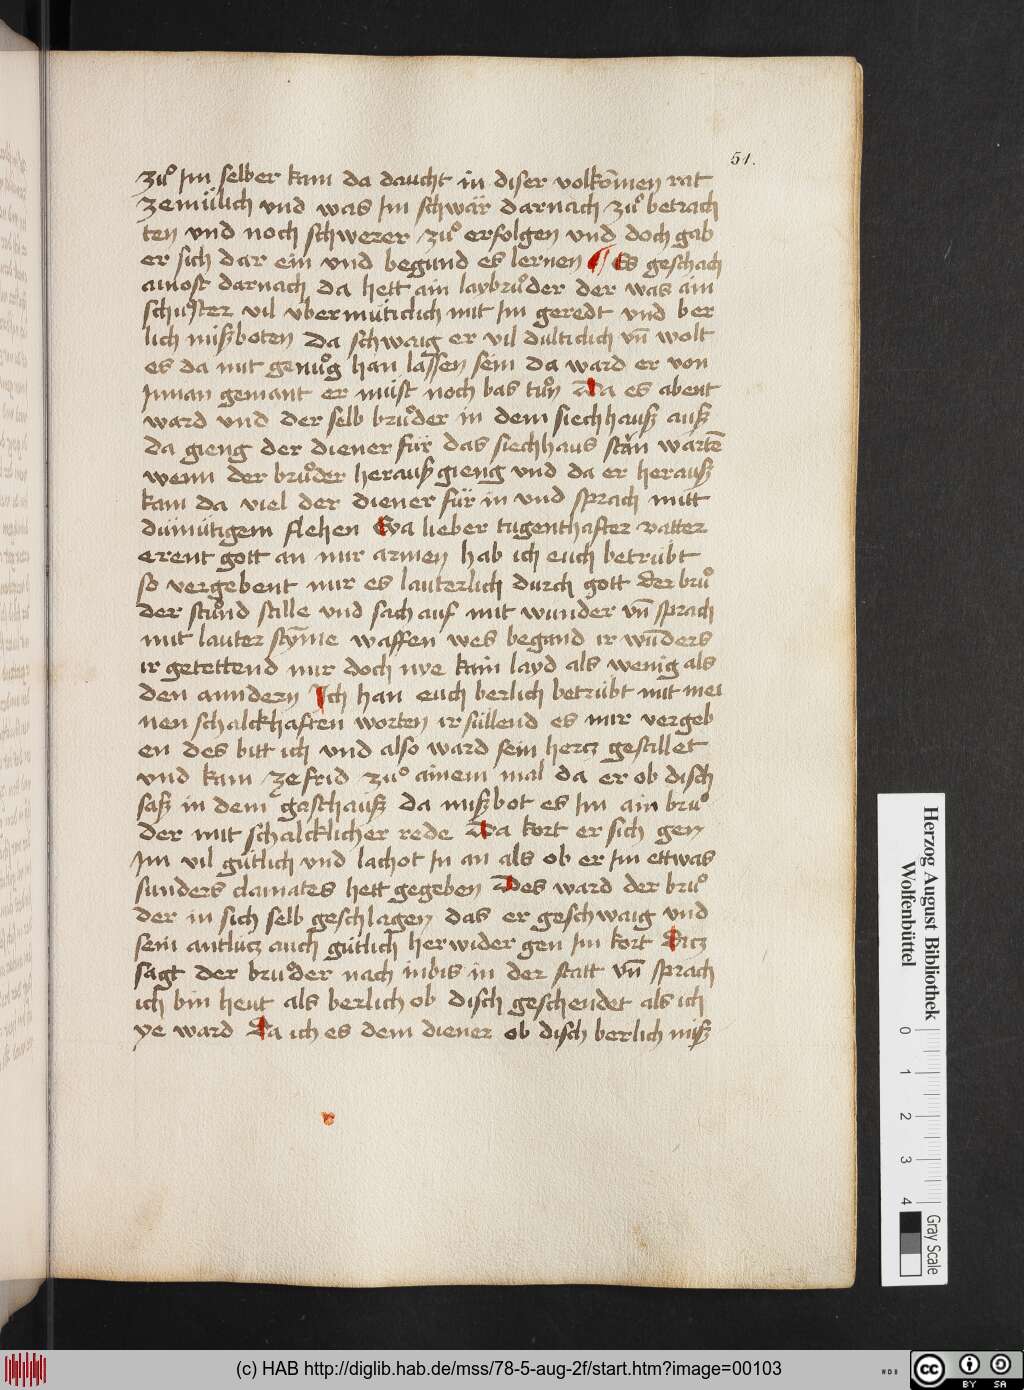 51.
zuͦ Im selber kam da daucht in diser volkōmen rat
zemülich vnd was Im schwär darnach zuͦ betrach
ten vnd noch schwerer zuͦ erfolgen vnd doch gab
er sich dar ein vnd begund es lernen ¶ Es geschach
amost darnach da hett ain laybruͦder der was ain
schuster vil vbermüticlich mit Im geredt vnd ber
lich mißboten da schwaig er vil dulticlich vn̄ wolt
es da mit genuͦg han lassen sein da ward er von
Innan gemant er müst noch bas tuͦn Da es abent
ward vnd der selb bruͦder in dem siechhauß auß
da gieng der diener für das siechhaus stān wartē
wenn der bruͦder herauß gieng vnd da er herauß
kam da viel der diener für in vnd sprach mitt
dümütigem flehen Eya lieber tugenthafter vatter
erent gott an mir armen hab ich euch betrübt
so vergebent mir es lauterlich durch gott der bruͦ
der stuͦnd stille vnd sach auf mit wunder vn̄ sprach
mit lauter stȳme waffen wes begand ir wūders
ir getettend mir doch nye kain layd als wenig als
den anndern Ich han euch berlich betrübt mit mei
nen schalckhaften worten ir süllend es mir vergeb
en des bitt ich vnd also ward sein hercz gestillet
vnd kam ze frid zuͦ ainem mal da er ob disch
saß in dem gasthauß da mißbot es Im ain bruͦ
der mit schalcklicher rede Da kort er sich gen
Im vil gütlich vnd lachot In an als ob er Im ettwas
sunders clainates hett gegeben Des ward der bruͦ
der in sich selb geschlagen das er geschwaig vnd
sein antlücz auch gütlich herwider gen Im kort Dicz
sagt der bruͦder nach inbis in der statt vn̄ sprach
ich bin heut als berlich ob disch geschendet als ich
ye ward Da ich es dem diener ob disch berlich miß
Herzog August Bibliothek
Wolfenbüttel
0 1 2 3 4
Gray Scale
(c) HAB http://diglib.hab.de/mss/78-5-aug-2f/start.htm?image=00103
WDB
cc BY SA